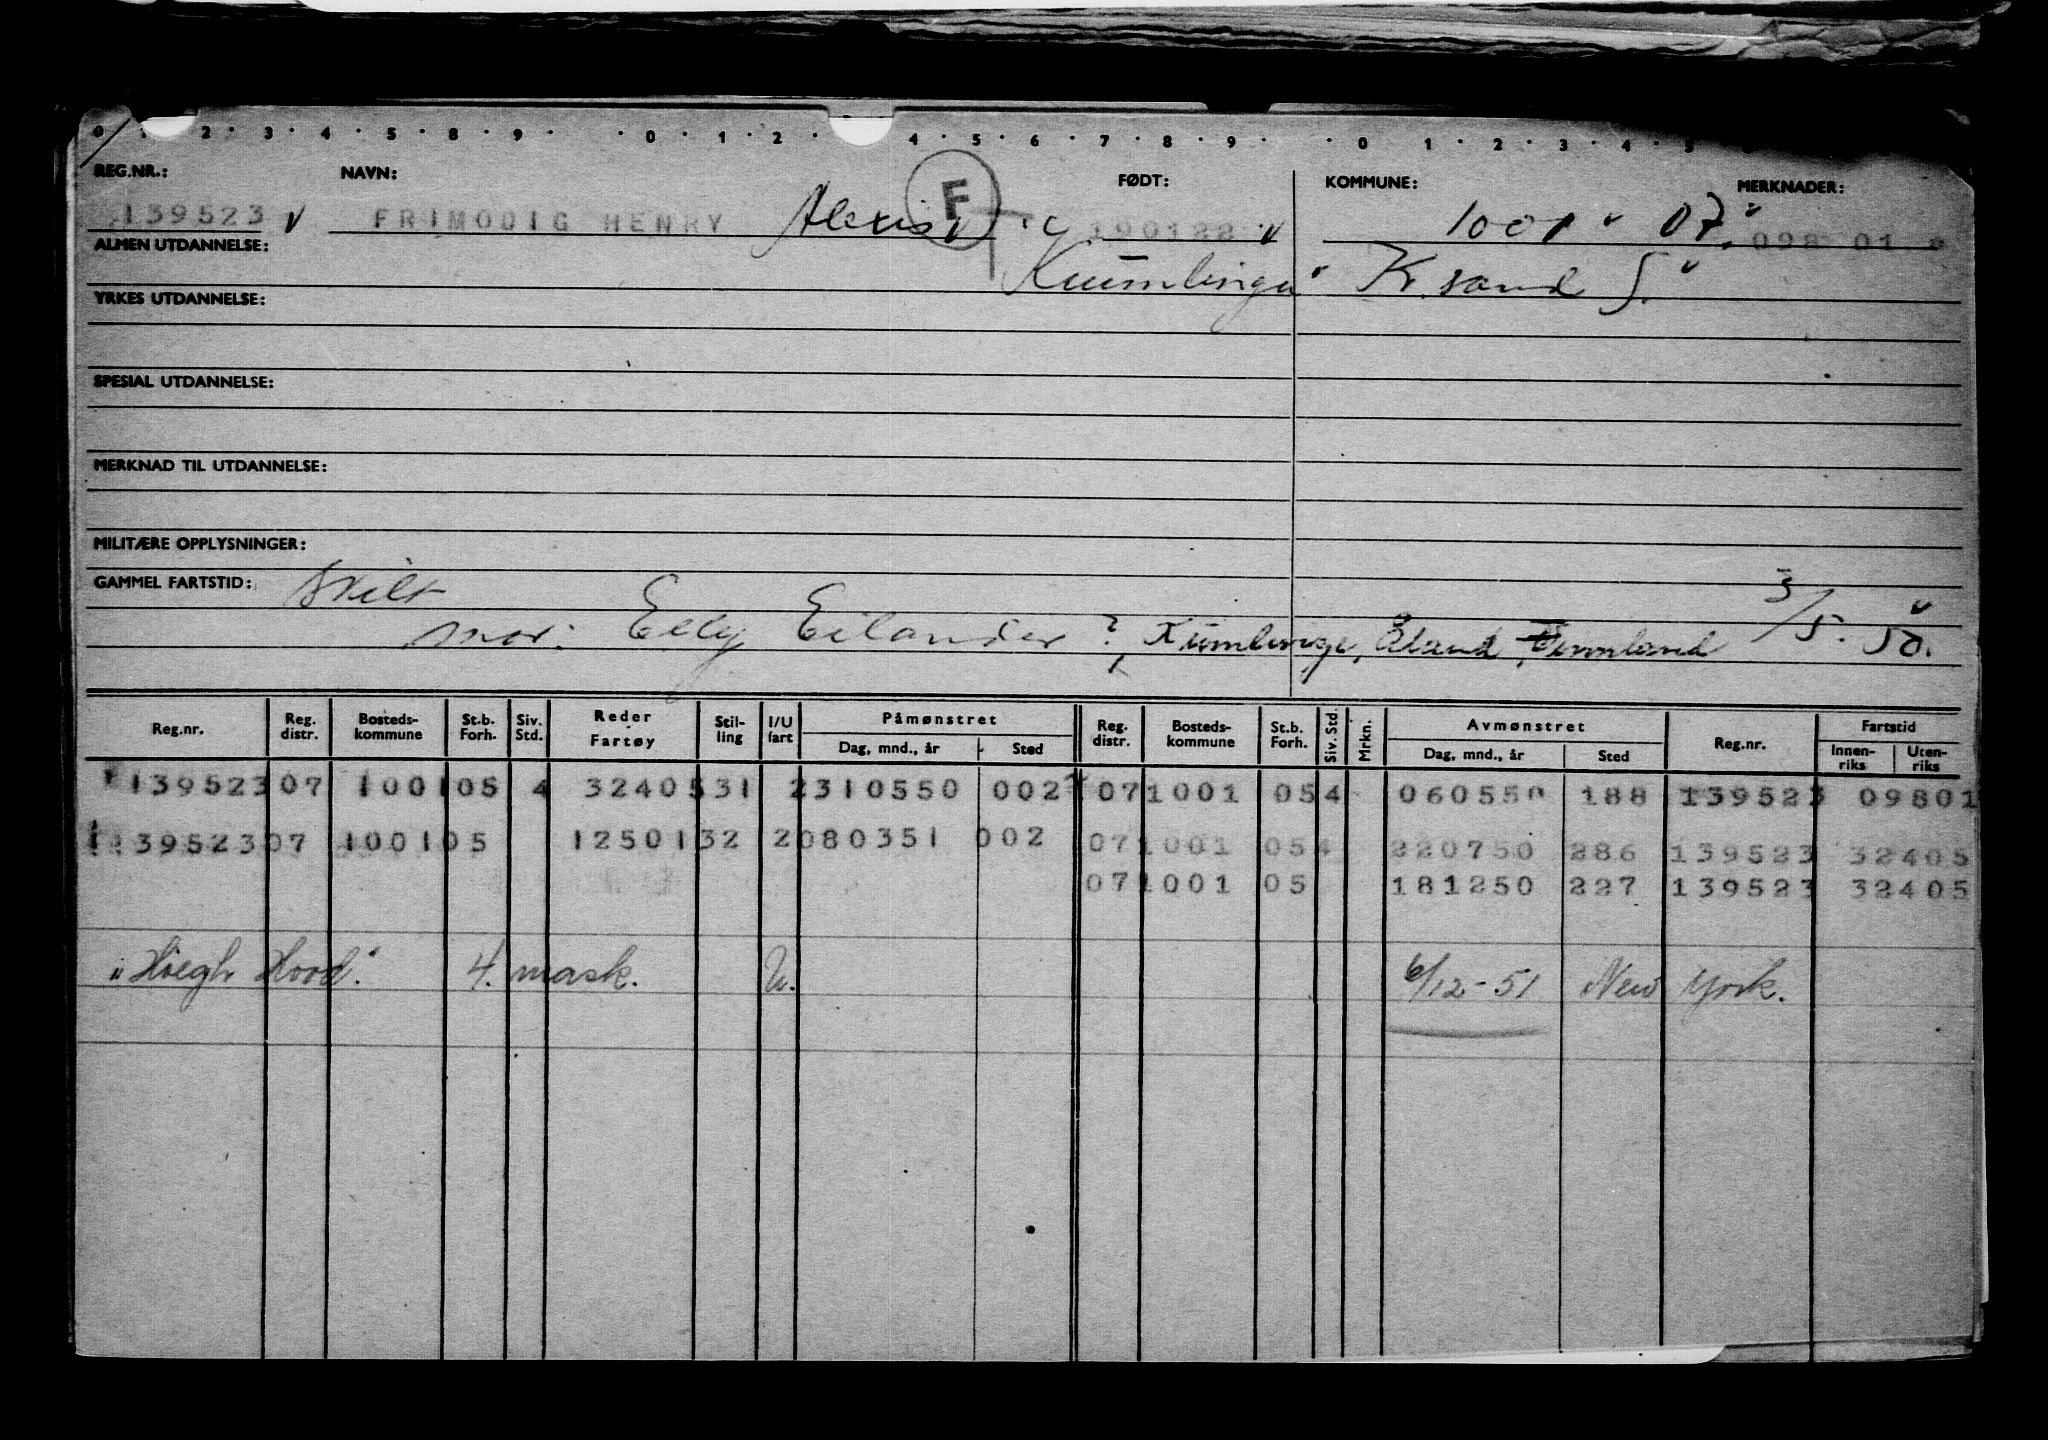 0 1 · 2 · 3 · 4 · 5 · 8 · 9 · · 0 · 1 · 2 · 4 · 5 · 6 · 7 · 8 · 9 · · 0 · 1 · 2 · 3 · 4 · 5
REG.NR.: NAVN: F FØDT: KOMMUNE: MERKNADER:
139523 v FRIMODIG HENRY Alexis v 190122 v 1001 07. 098 01
ALMEN UTDANNELSE: Kumlinge K.sand S.
YRKES UTDANNELSE:
SPESIAL UTDANNELSE:
MERKNAD TIL UTDANNELSE:
MILITÆRE OPPLYSNINGER:
GAMMEL FARTSTID: skilt 3/5. 50.
mor: Elly Eilander ? Kumlinge, Åland, Finnland
Reg.nr. Reg. distr. Bosteds-kommune St.b. Forh. Siv. Std. Reder Fartøy Stil-ling I/U fart Påmønstret Dag, mnd., år Sted Reg. distr. Bosteds-kommune St.b. Forh. Siv. Std. Mrkn. Avmønstret Dag, mnd., år Sted Reg.nr. Fartstid Innen-riks Uten-riks
139523 07 1001 05 4 32405 31 2 310550 002 07 1001 05 4 060550 188 139523 09801
139523 07 1001 05 12501 32 2 080351 002 07 1001 05 4 220750 286 139523 32405
07 1001 05 181250 227 139523 32405
"Høegh Hood." 4. mask. U. 6/12-51 New York.